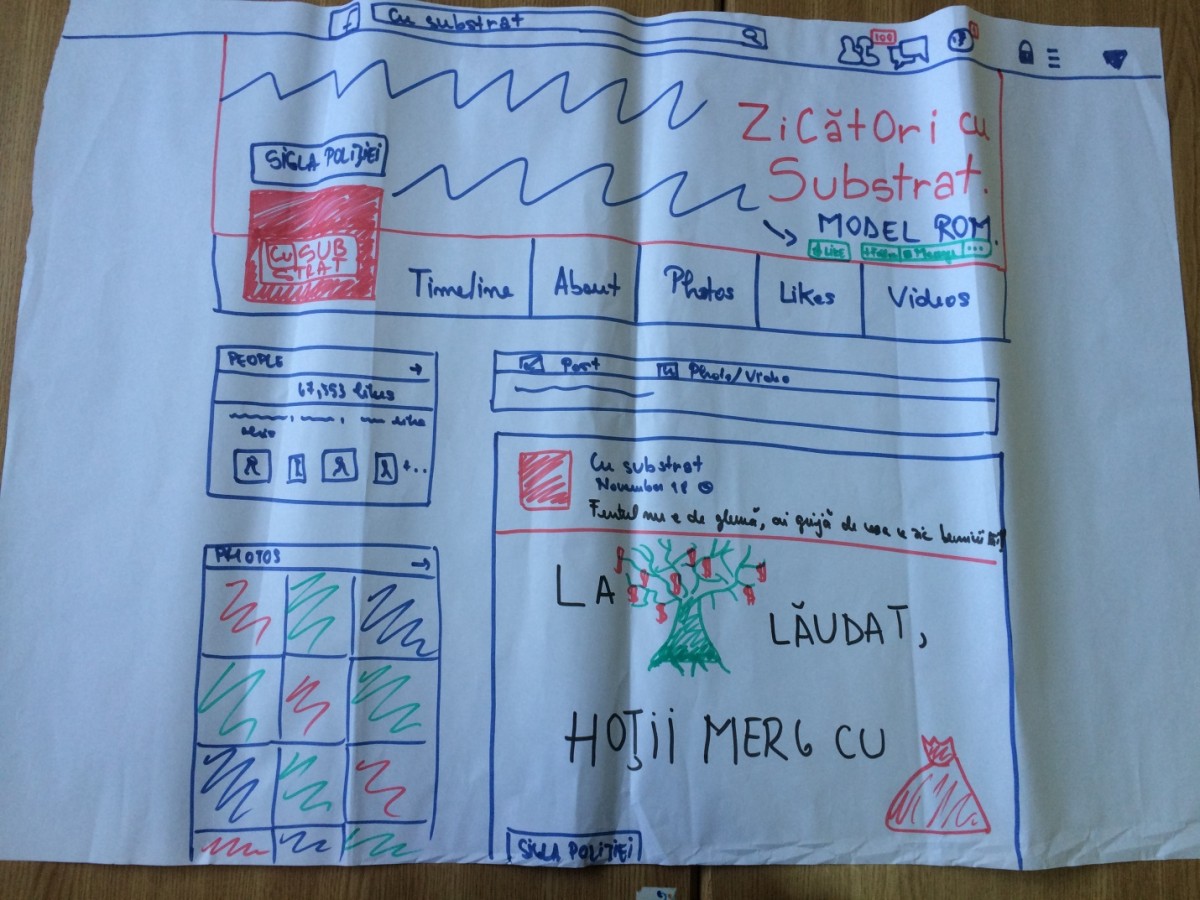 f
Cu substrat
100
Zicători cu
Substrat.
MODEL ROM.
SIGLA POLIȚIEI
CU SUB
STRAT
Like
Timeline
About
Photos
Likes
Videos
PEOPLE
likes
like
Post
Photo/Video
Cu substrat
November 18
Furtul nu e de glumă, ai grijă de
PHOTOS
LA
LĂUDAT,
HOȚII MERG CU
SIGLA POLIȚIEI